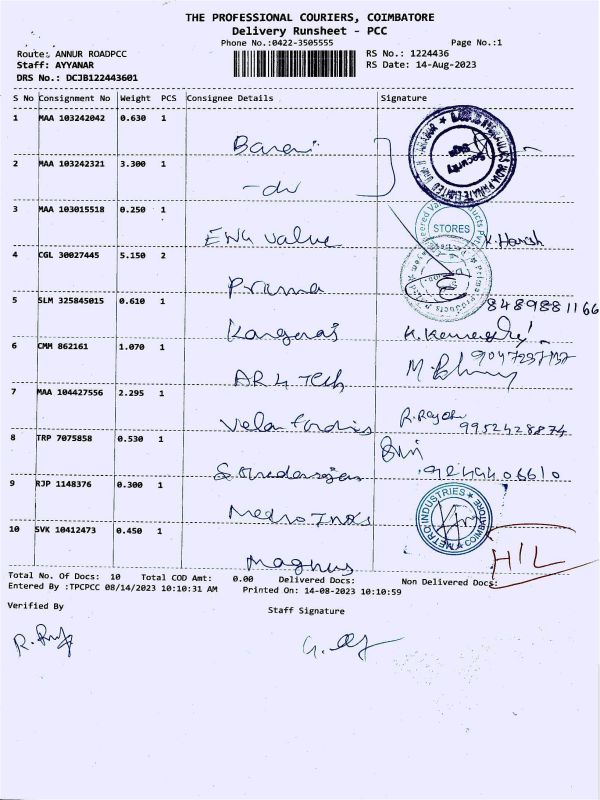 THE PROFESSIONAL COURIERS, COIMBATORE
Delivery Runsheet - PCC
Phone No.:0422-3505555
Page No.:1
Route: ANNUR ROADPCC
RS No.: 1224436
Staff: AYYANAR
RS Date: 14-Aug-2023
DRS No.: DCJB122443601
S No Consignment No Weight PCS Consignee Details Signature
1 MAA 103242042 0.630 1
2 MAA 103242321 3.300 1
-do
3 MAA 103015518 0.250 1
STORES
Eng Value K. Harish
4 CGL 30027445 5.150 2
Prima
5 SLM 325845015 0.610 1 8489881166
Kangaraj
6 CMM 862161 1.070 1
AR4 Tech
7 MAA 104427556 2.295 1
9952428874
8 TRP 7075858 0.530 1
9 RJP 1148376 0.300 1
METRO INDUSTRIES COIMBATORE
10 SVK 10412473 0.450 1
Magnus
H/L
Total No. Of Docs: 10 Total COD Amt: 0.00 Delivered Docs: Non Delivered Docs:
Entered By :TPCPCC 08/14/2023 10:10:31 AM Printed On: 14-08-2023 10:10:59
Verified By
Staff Signature